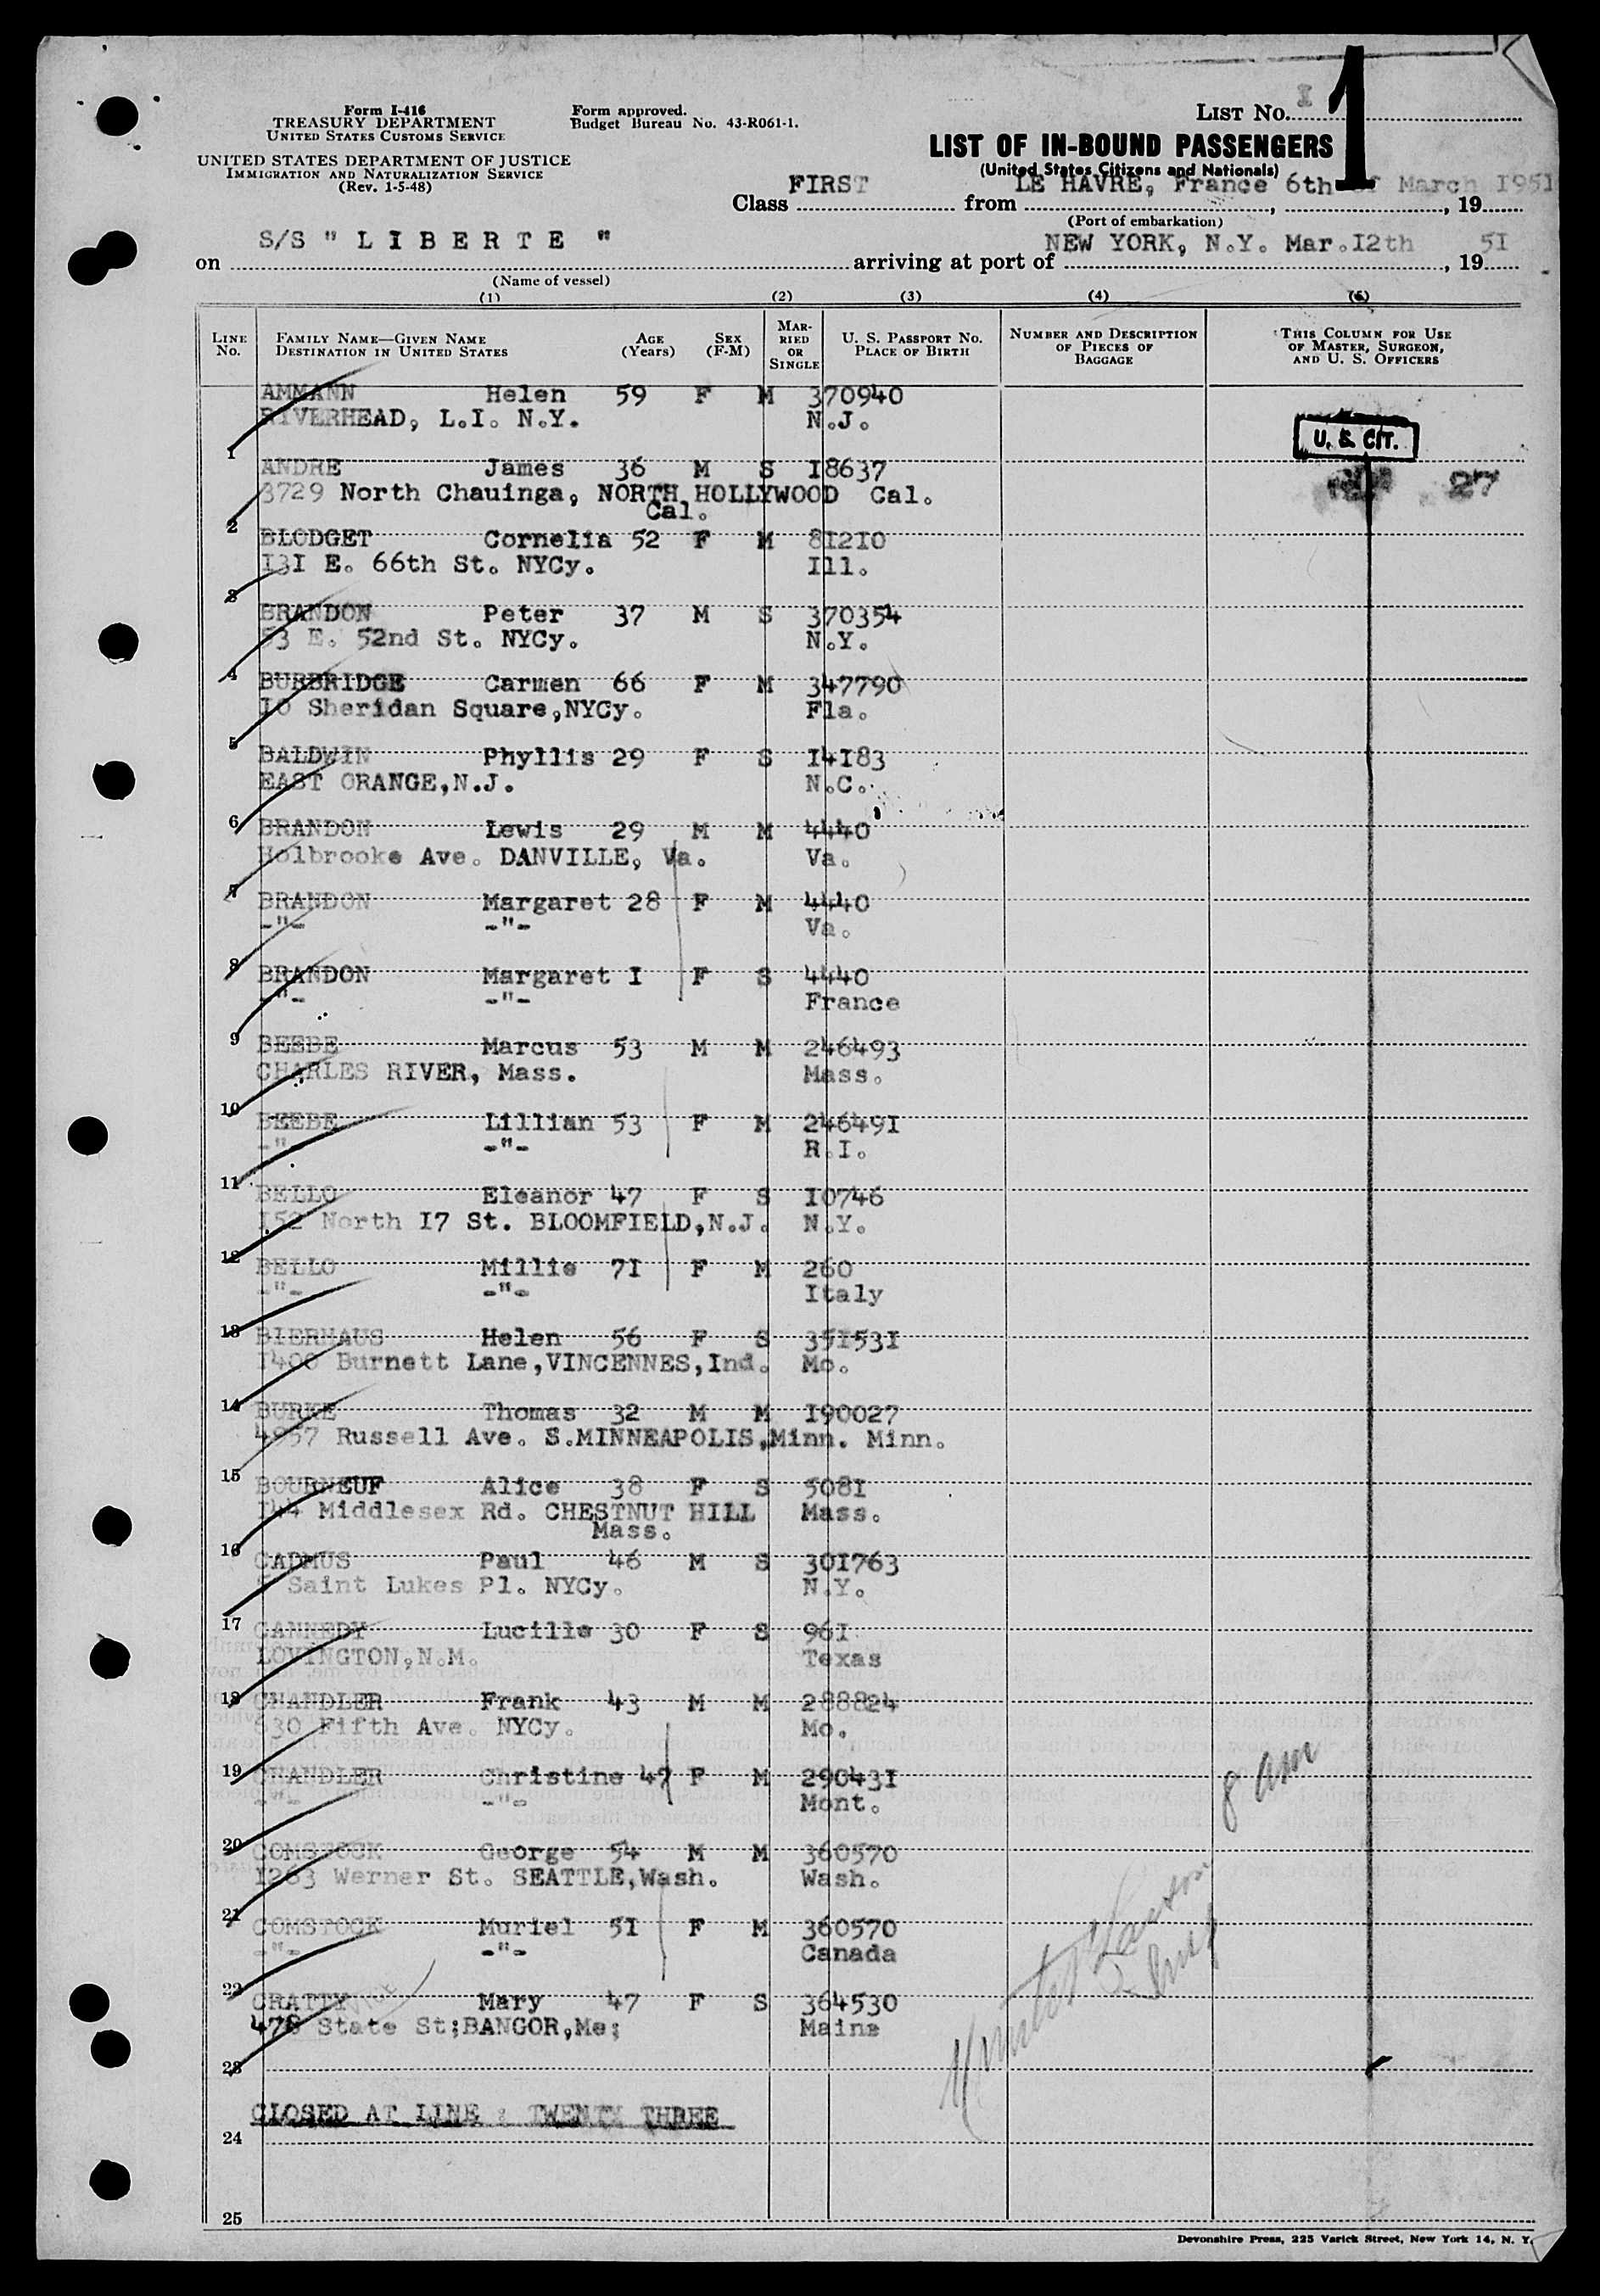 Form I-416
TREASURY DEPARTMENT
UNITED STATES CUSTOMS SERVICE
UNITED STATES DEPARTMENT OF JUSTICE
IMMIGRATION AND NATURALIZATION SERVICE
(Rev. 1-5-48)
Form approved.
Budget Bureau No. 43-R061-1.
LIST No. I
1
LIST OF IN-BOUND PASSENGERS
(United States Citizens and Nationals)
Class FIRST from LE HAVRE, France 6th of March 1951, 19
(Port of embarkation)
on S/S " L I B E R T E " arriving at port of NEW YORK, N.Y. Mar.12th, 19 51
(Name of vessel)
(1) (2) (3) (4) (5)
LINE No. FAMILY NAME—GIVEN NAME DESTINATION IN UNITED STATES AGE (Years) SEX (F-M) MARRIED OR SINGLE U. S. PASSPORT No. PLACE OF BIRTH NUMBER AND DESCRIPTION OF PIECES OF BAGGAGE THIS COLUMN FOR USE OF MASTER, SURGEON, AND U. S. OFFICERS
AMMANN Helen 59 F M 370940
RIVERHEAD, L.I. N.Y. N.J.
U. S. CIT.
1
ANDRE James 36 M S I8637
3729 North Chauinga, NORTH HOLLYWOOD Cal.
Cal.
27
2
BLODGET Cornelia 52 F M 8I2I0
I3I E. 66th St. NYCy. Ill.
3
BRANDON Peter 37 M S 370354
53 E. 52nd St. NYCy. N.Y.
4
BURBRIDGE Carmen 66 F M 347790
I0 Sheridan Square,NYCy. Fla.
5
BALDWIN Phyllis 29 F S I4I83
EAST ORANGE,N.J. N.C.
6
BRANDON Lewis 29 M M 4440
Holbrooke Ave. DANVILLE, Va. Va.
7
BRANDON Margaret 28 F M 4440
-"- -"- Va.
8
BRANDON Margaret I F S 4440
-"- -"- France
9
BEEBE Marcus 53 M M 246493
CHARLES RIVER, Mass. Mass.
10
BEEBE Lillian 53 F M 24649I
-"- -"- R.I.
11
BELLO Eleanor 47 F S I0746
I52 North I7 St. BLOOMFIELD,N.J. N.Y.
12
BELLO Millie 7I F M 260
-"- -"- Italy
13
BIERHAUS Helen 56 F S 35I53I
I400 Burnett Lane,VINCENNES,Ind. Mo.
14
BURKE Thomas 32 M M I90027
4857 Russell Ave. S.MINNEAPOLIS,Minn. Minn.
15
BOURNEUF Alice 38 F S 508I
I44 Middlesex Rd. CHESTNUT HILL Mass.
Mass.
16
CADMUS Paul 46 M S 30I763
Saint Lukes Pl. NYCy. N.Y.
17
CANNEDY Lucille 30 F S 96I
LOVINGTON,N.M. Texas
18
CHANDLER Frank 43 M M 288824
630 Fifth Ave. NYCy. Mo.
19
CHANDLER Christine 47 F M 29043I
-"- -"- Mont.
8 am
20
COMSTOCK George 54 M M 360570
I263 Werner St. SEATTLE,Wash. Wash.
21
COMSTOCK Muriel 5I F M 360570
-"- -"- Canada
22
CRATTY Mary 47 F S 364530
478 State St;BANGOR,Me; Maine
23
CLOSED AT LINE : TWENTY THREE
24
25
Devonshire Press, 225 Varick Street, New York 14, N. Y.